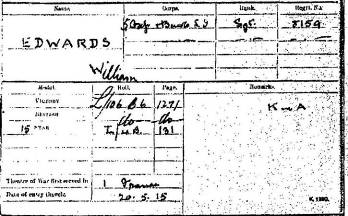 Name. Corps. Rank. Regtl. No.
EDWARDS Oxf & Bucks L I Sgt. 8154
William
Medal. Roll. Page. Remarks.
VICTORY L/106 B6 1271 K in A
BRITISH do do
15 STAR 131
Theatre of War first served in 1 France
Date of entry therein 20.5.15